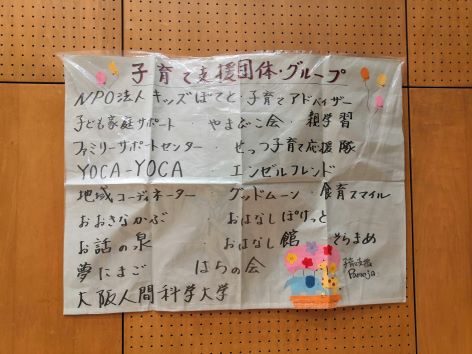 子育て支援団体・グループ
NPO法人 キッズぽてと・子育てアドバイザー
子ども家庭サポート やまびこ会・親学習
ファミリーサポートセンター・せっつ子育て応援隊
YOCA-YOCA・エンゼルフレンド
地域コーディネーター・グッドムーン・食育スマイル
おおきなかぶ・おはなしぽけっと
お話の泉・おはなし館 そらまめ
夢にまご はらの会
子育て支援
大阪人間科学大学